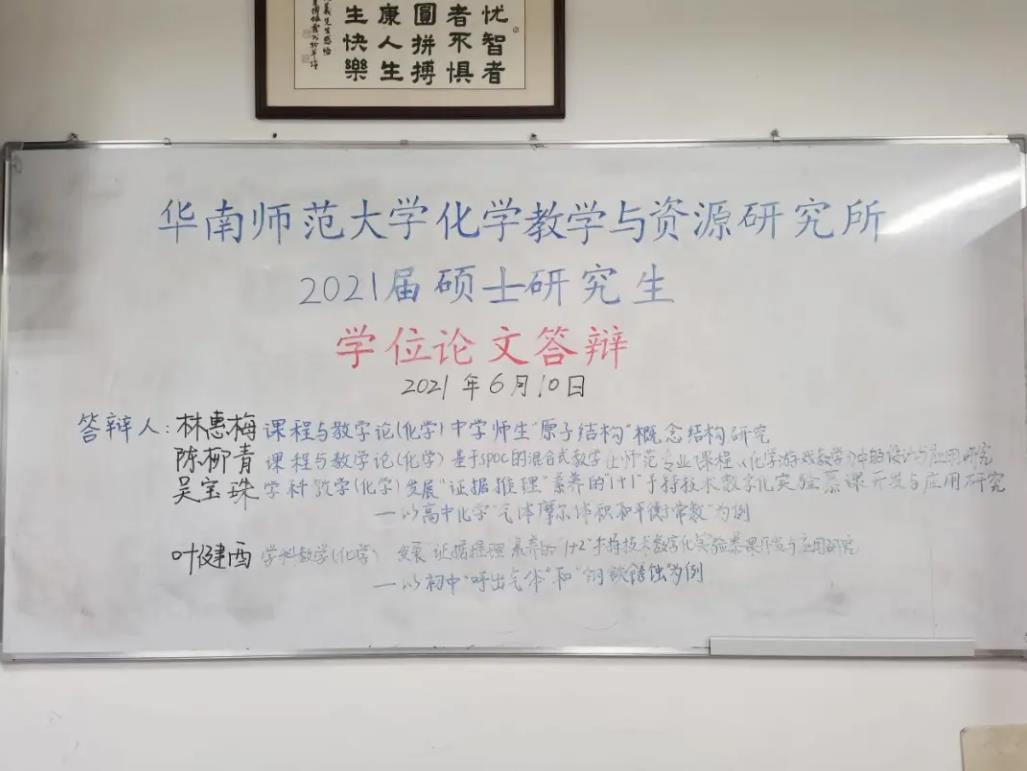 忧智者
者不惧
圆拼搏
康人生
生快樂
华南师范大学化学教学与资源研究所
2021届硕士研究生
学位论文答辩
2021年6月10日
答辩人:林惠梅 课程与教学论(化学) 中学师生"原子结构"概念结构研究
陈柳青 课程与教学论(化学) 基于SPOC的混合式教学在师范专业课程《化学游戏教学》中的设计与应用研究
吴宝珠 学科教学(化学) 发展"证据推理"素养的"1+1"手持技术数字化实验慕课开发与应用研究
——以高中化学"气体摩尔体积和平衡常数"为例
叶健 学科教学(化学) 发展"证据推理"素养的"1+2"手持技术数字化实验慕课开发与应用研究
——以初中"呼出气体"和"钢铁锈蚀"为例